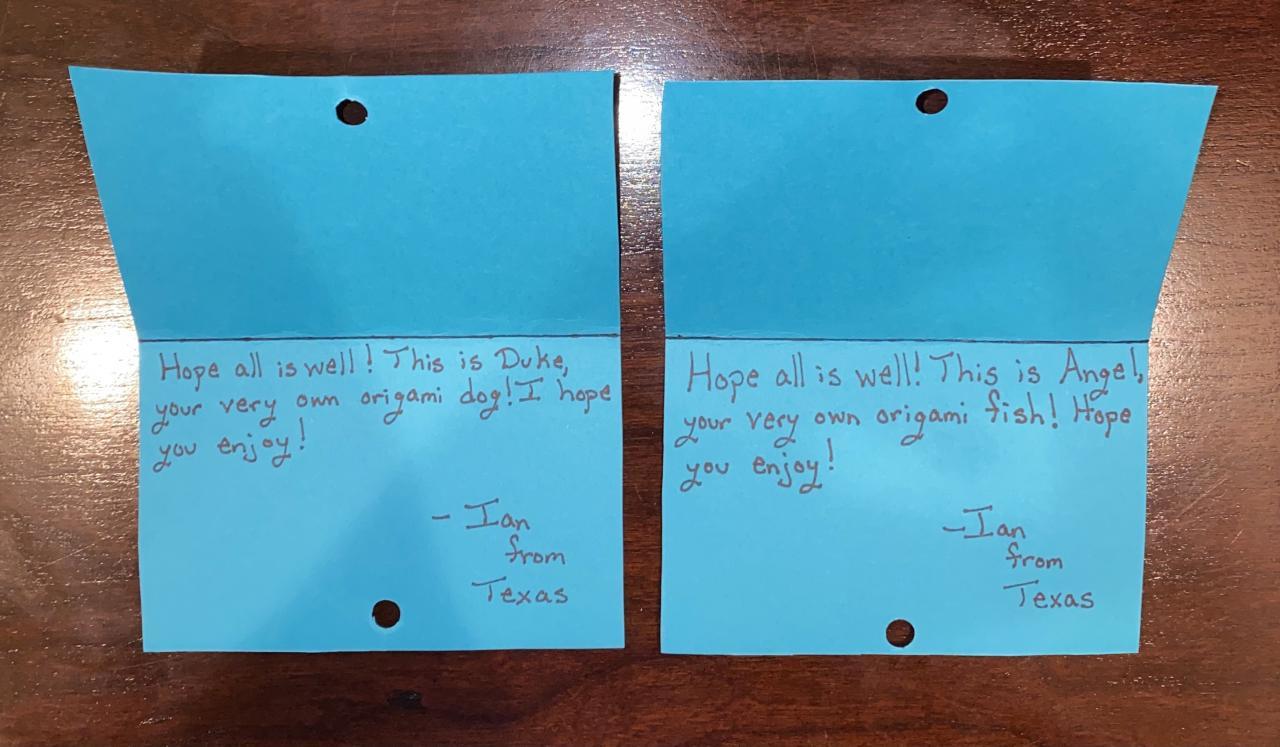 Hope all is well! This is Duke,
your very own origami dog! I hope
you enjoy!
- Ian
from
Texas
Hope all is well! This is Angel,
your very own origami fish! Hope
you enjoy!
-Ian
from
Texas